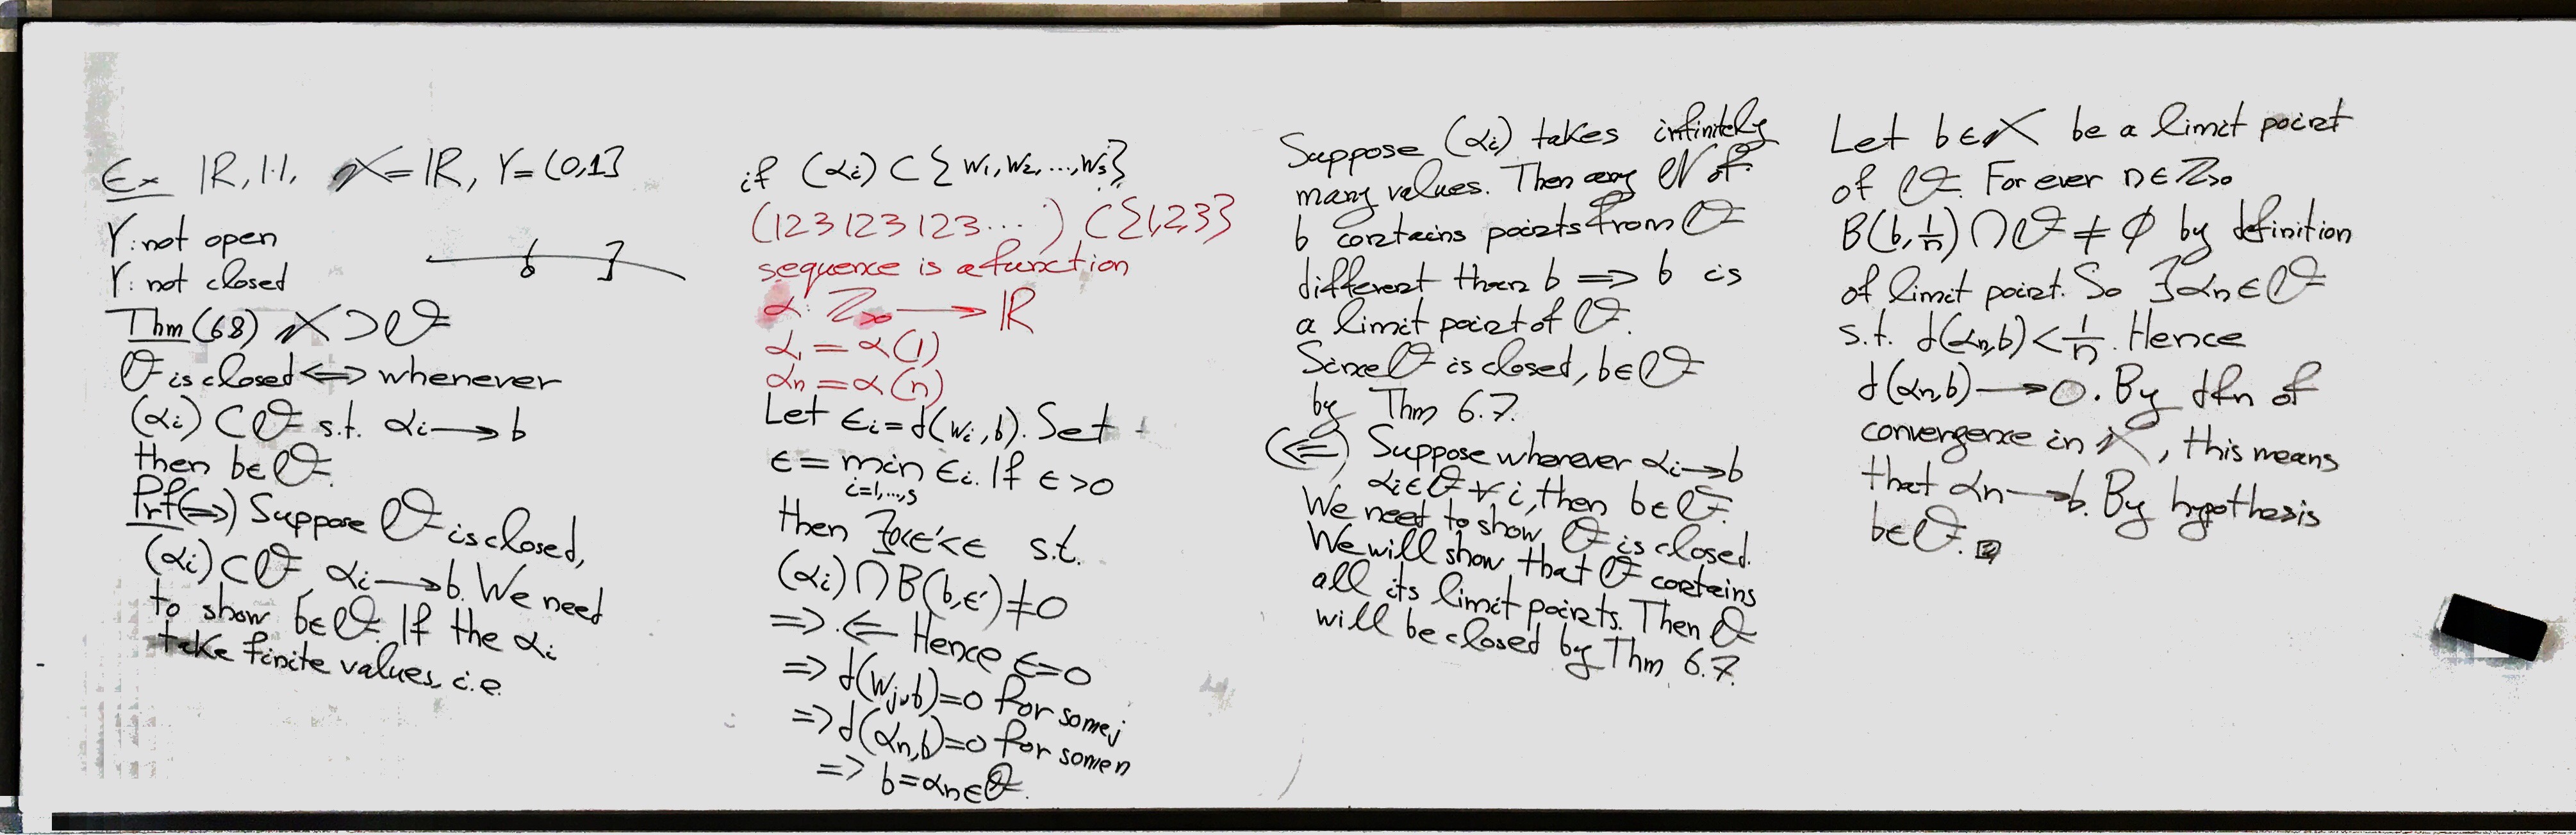 Ex ℝ, |·|, X = ℝ, Y = (0,1]
Y: not open
Y: not closed
b ]
Thm (6.8) X ⊃ F
F is closed ⟺ whenever
(αi) ⊂ F s.t. αi → b
then b ∈ F.
Prf (⟹) Suppose F is closed,
(αi) ⊂ F, αi → b. We need
to show b ∈ F. If the αi
take finite values, i.e.
if (αi) ⊂ { w1, w2, ..., ws}
(123 123 123 ...) ⊂ {1,2,3}
sequence is a function
α: ℤ>0 → ℝ
α1 = α(1)
αn = α(n)
Let ϵi = d(wi, b). Set
ϵ = min ϵi. If ϵ > 0
i=1,...,s
then ∃ 0<ϵ'<ϵ s.t.
(αi) ∩ B(b, ϵ') ≠ 0
⇒ ⇐ Hence ϵ = 0
⇒ d(wj, b) = 0 for some j
⇒ d(αn, b) = 0 for some n
⇒ b = αn ∈ F.
Suppose (αi) takes infinitely
many values. Then any N of
b contains points from F
different than b ⇒ b is
a limit point of F.
Since F is closed, b ∈ F
by Thm 6.7.
(⟸) Suppose whenever αi → b
αi ∈ F ∀ i, then b ∈ F.
We need to show F is closed.
We will show that F contains
all its limit points. Then F
will be closed by Thm 6.7.
Let b ∈ X be a limit point
of F. For ever n ∈ ℤ>0
B(b, 1/n) ∩ F ≠ ∅ by definition
of limit point. So ∃ αn ∈ F
s.t. d(αn, b) < 1/n. Hence
d(αn, b) → 0. By dfn of
convergence in X, this means
that αn → b. By hypothesis
b ∈ F. □